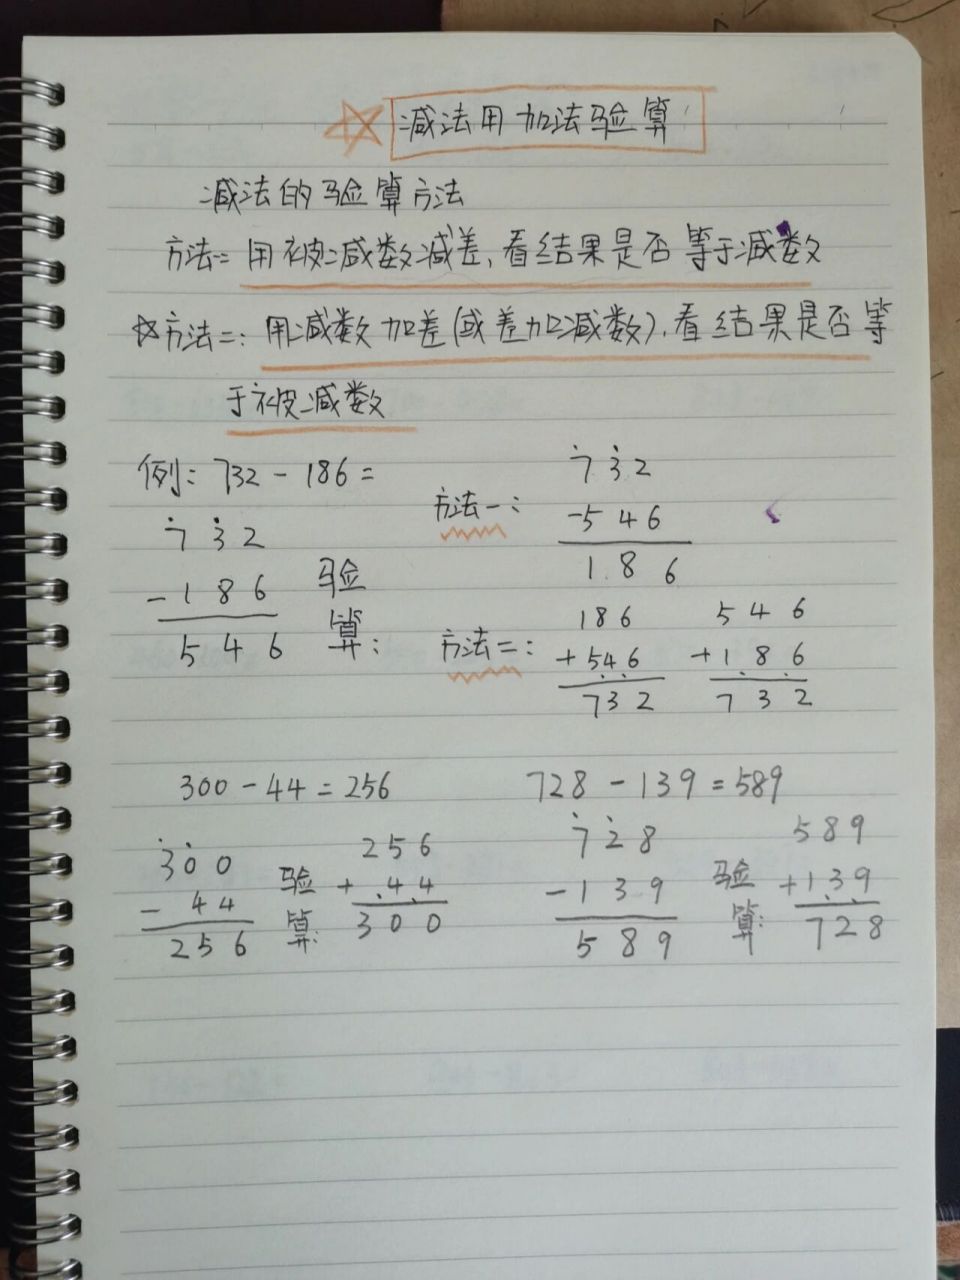 减法用加法验算
减法的验算方法
方法一: 用被减数减差,看结果是否等于减数
☆方法二: 用减数加差(或差加减数),看结果是否等
于被减数
例: 732 - 186 =
732
-186
546
验算:
方法一:
732
-546
186
方法二:
186
+546
732
546
+186
732
300 - 44 = 256
300
- 44
256
验算:
256
+ 44
300
728 - 139 = 589
728
-139
589
验算:
589
+139
728